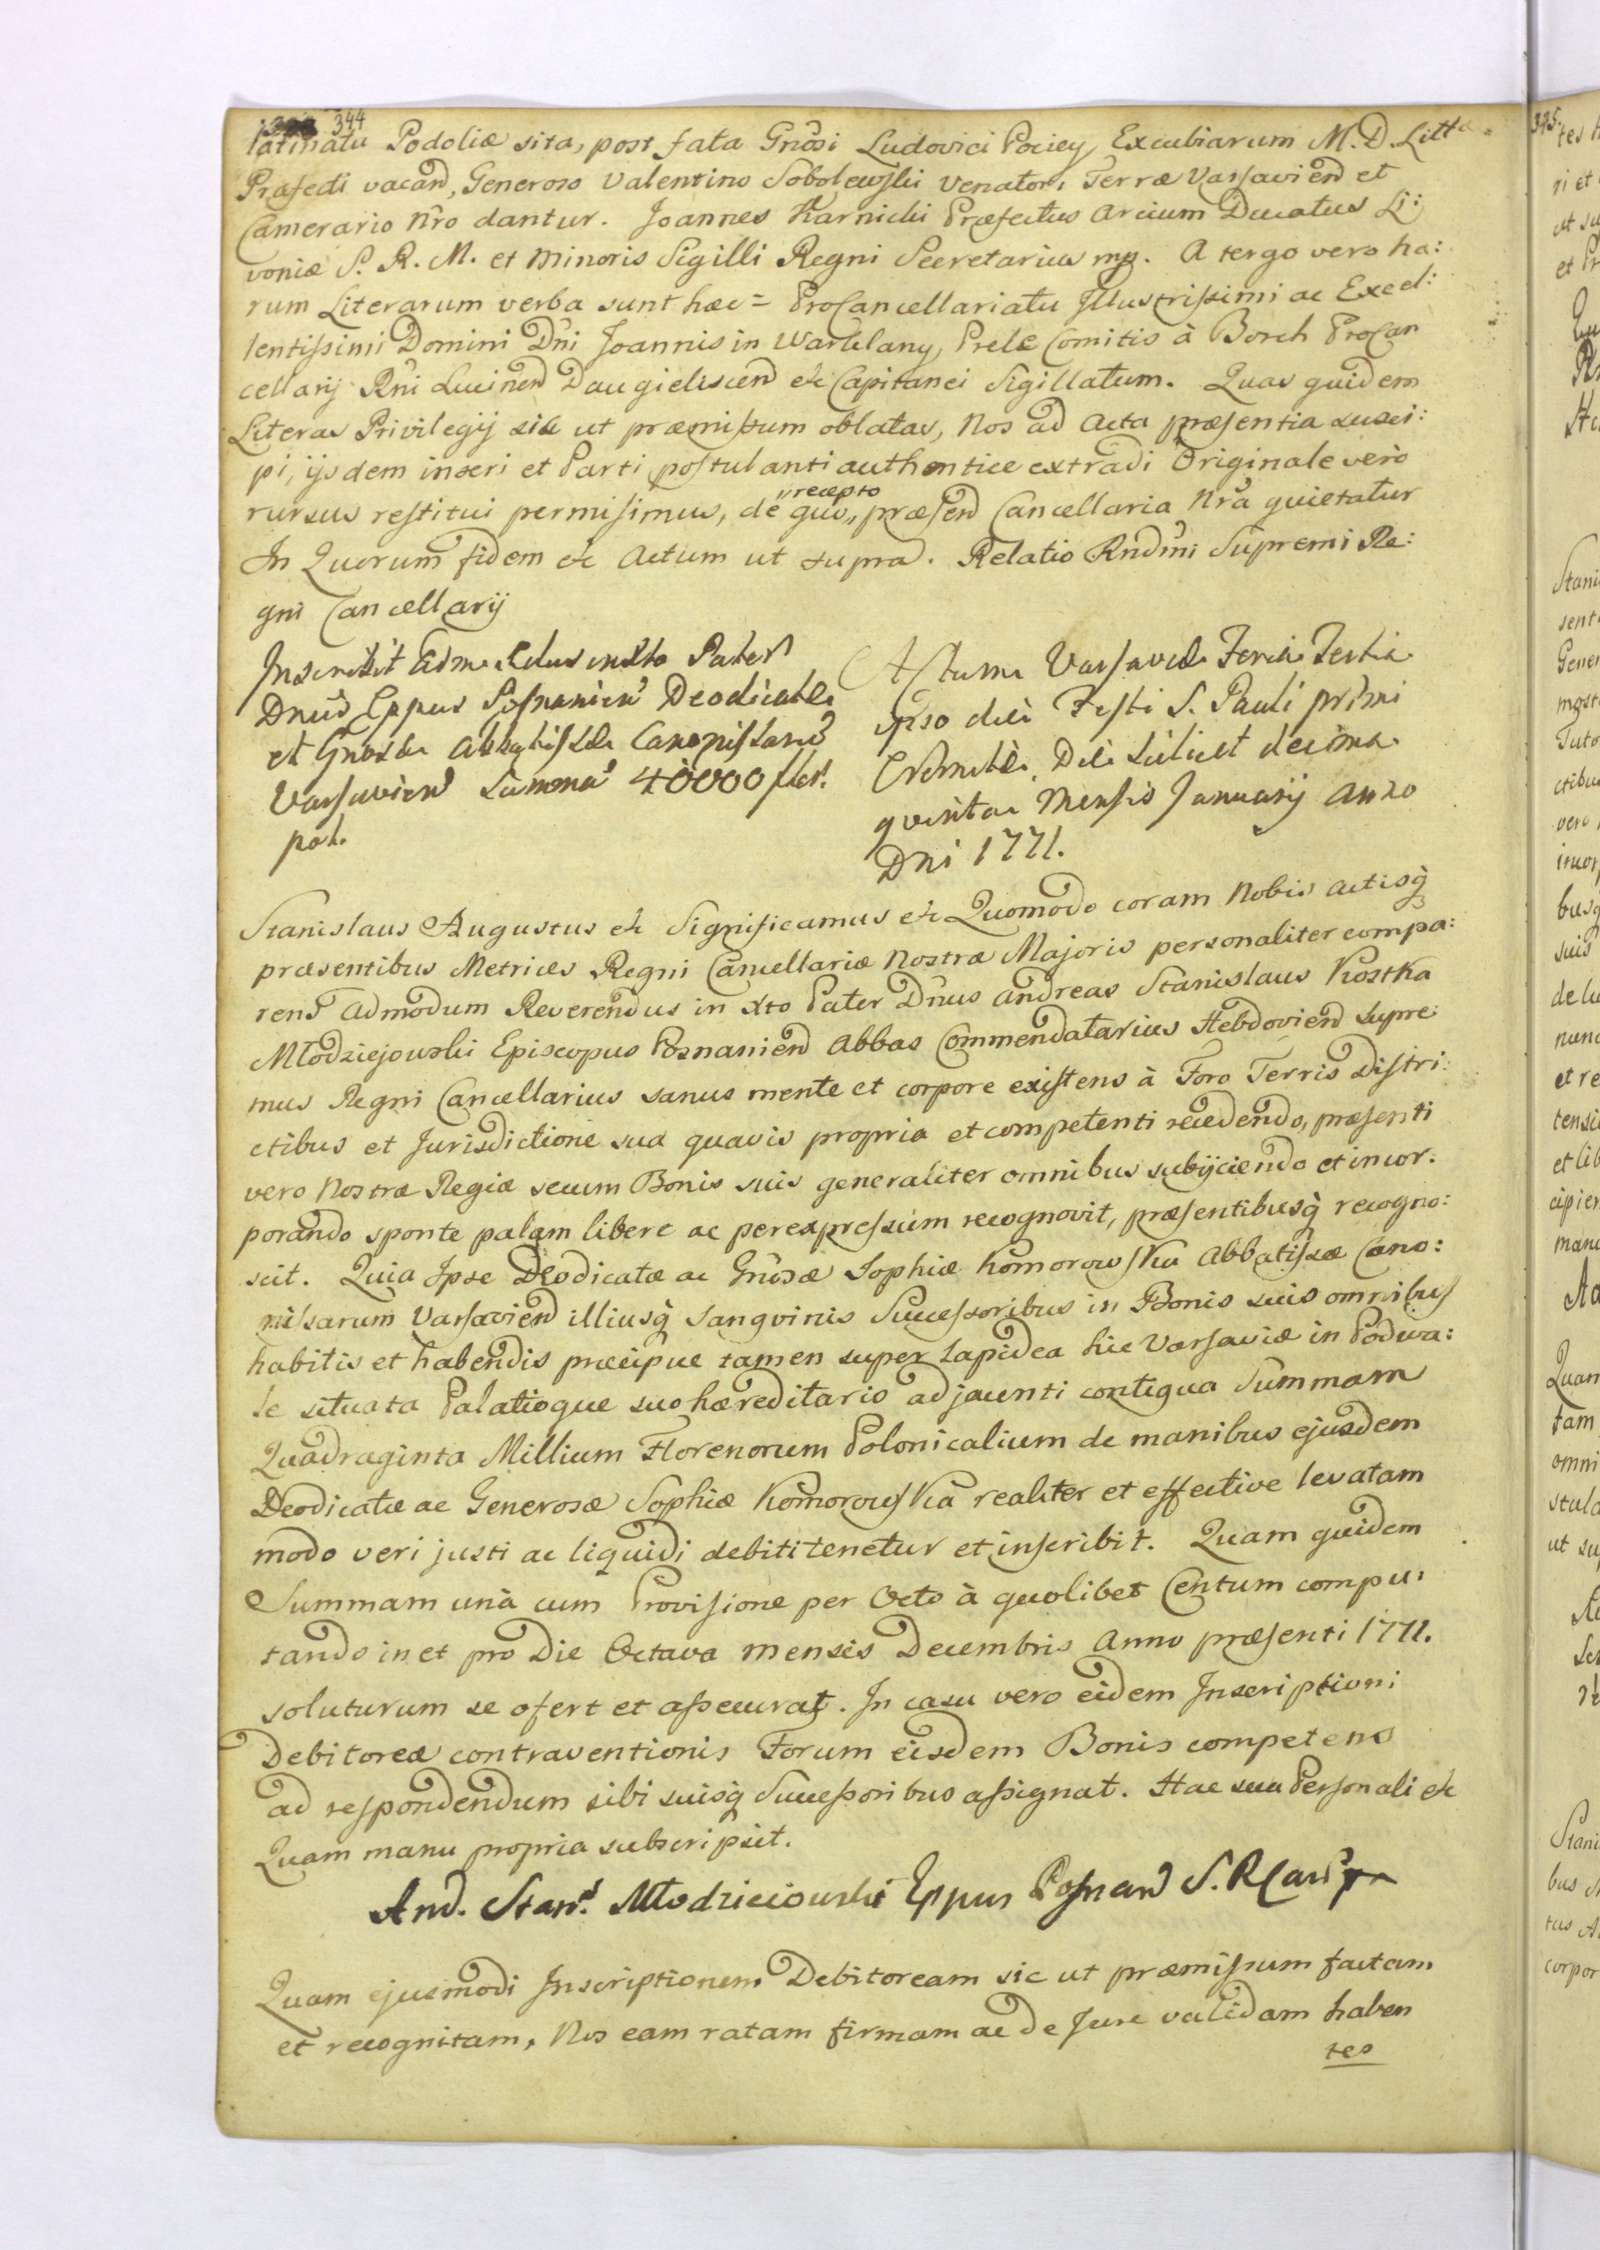 344
latinatu Podoliæ sita, post fata Gnosi Ludovici Pociey, Excubiarum M. D. Litt
Præfecti vacand, Generoso Valentino Sobolewski Venatori Terræ Varsaviend et
Camerario Nro dantur. Joannes Karnicki Præfectus Arcium Ducatus Li:
voniæ S. R. M. et Minoris Sigilli Regni Secretarius mp. A tergo vero ha:
rum Literarum verba sunt hæc = ProCancellariatu Jllustrissimi ac Excel:
lentissimi Domini Dni Joannis in Warklany, Prele Comitis à Borch ProCan
cellarij Rni Lucinend Daugieliscend etc Capitanei Sigillatum. Quas quidem
Literas Privilegij sic ut præmissum oblatas, Nos ad Acta præsentia susci:
pi, ijsdem inseri et Parti postulanti authentice extradi Originale verò
rursus restitui permisimus, de quo „recepto„ præsend Cancellaria Nra quietatur
In Quorum fidem etc Actum ut supra. Relatio Rndmi Supremi Re:
gni Cancellarij
Inscribit Adm Rdus in Xto Pater
Dnus Eppus Posnanien Deodicatæ
et Gnosæ Abbatissæ Canonissarum
Varsavien Summa 40000 flor.
pol.
Actum Varsaviæ Feria Tertia
ipso die Festi S. Pauli primi
Eremitæ, Die scilicet decima
quinta Mensis Januarij Anno
Dni 1771.
Stanislaus Augustus etc Significamus etc Quomodo coram Nobis Actisq
præsentibus Metrices Regni Cancellariæ Nostræ Majoris personaliter compa:
rens Admodum Reverendus in Xto Pater Dnus Andreas Stanislaus Kostka
Młodziejowski Episcopus Posnaniend Abbas Commendatarius Hebdoviend Supre
mus Regni Cancellarius sanus mente et corpore existens à Foro Terris Distri:
ctibus et Jurisdictione sua quavis propria et competenti recedendo, præsenti
vero Nostræ Regiæ secum Bonis suis generaliter omnibus subijciendo et incor.
porando sponte palam libere ac per expressum recognovit, præsentibusq recogno:
scit. Quia Jpse Deodicatæ ac Gnosæ Sophiæ Komorowska Abbatissæ Cano:
nissarum Varsaviend illiusq Sangvinis Successoribus in Bonis suis omnibus
habitis et habendis præcipue tamen super Lapidea hic Varsaviæ in Podwa:
le situata Palatioque suo hæreditario adjacenti contigua Summam
Quadraginta Millium Florenorum Polonicalium de manibus ejusdem
Deodicatæ ac Generosæ Sophiæ Komorowska realiter et effective levatam
modo veri justi ac liquidi debiti tenetur et inscribit. Quam quidem
Summam unà cum Provisione per Octo à quolibet Centum compu:
tando in et pro Die Octava Mensis Decembris Anno præsenti 1771.
soluturum se ofert et assecurat. In casu vero eidem Jnscriptioni
Debitoreæ contraventionis Forum eisdem Bonis competens
ad respondendum sibi suisq Successoribus assignat. Hac sua Personali etc
Quam manu propria subscripsit.
And. Stan. Młodzieiowski Eppus Posnand S. R Can
Quam ejusmodi Inscriptionem Debitoream sic ut præmissum factam
et recognitam, Nos eam ratam firmam ac de Jure validam haben
tes